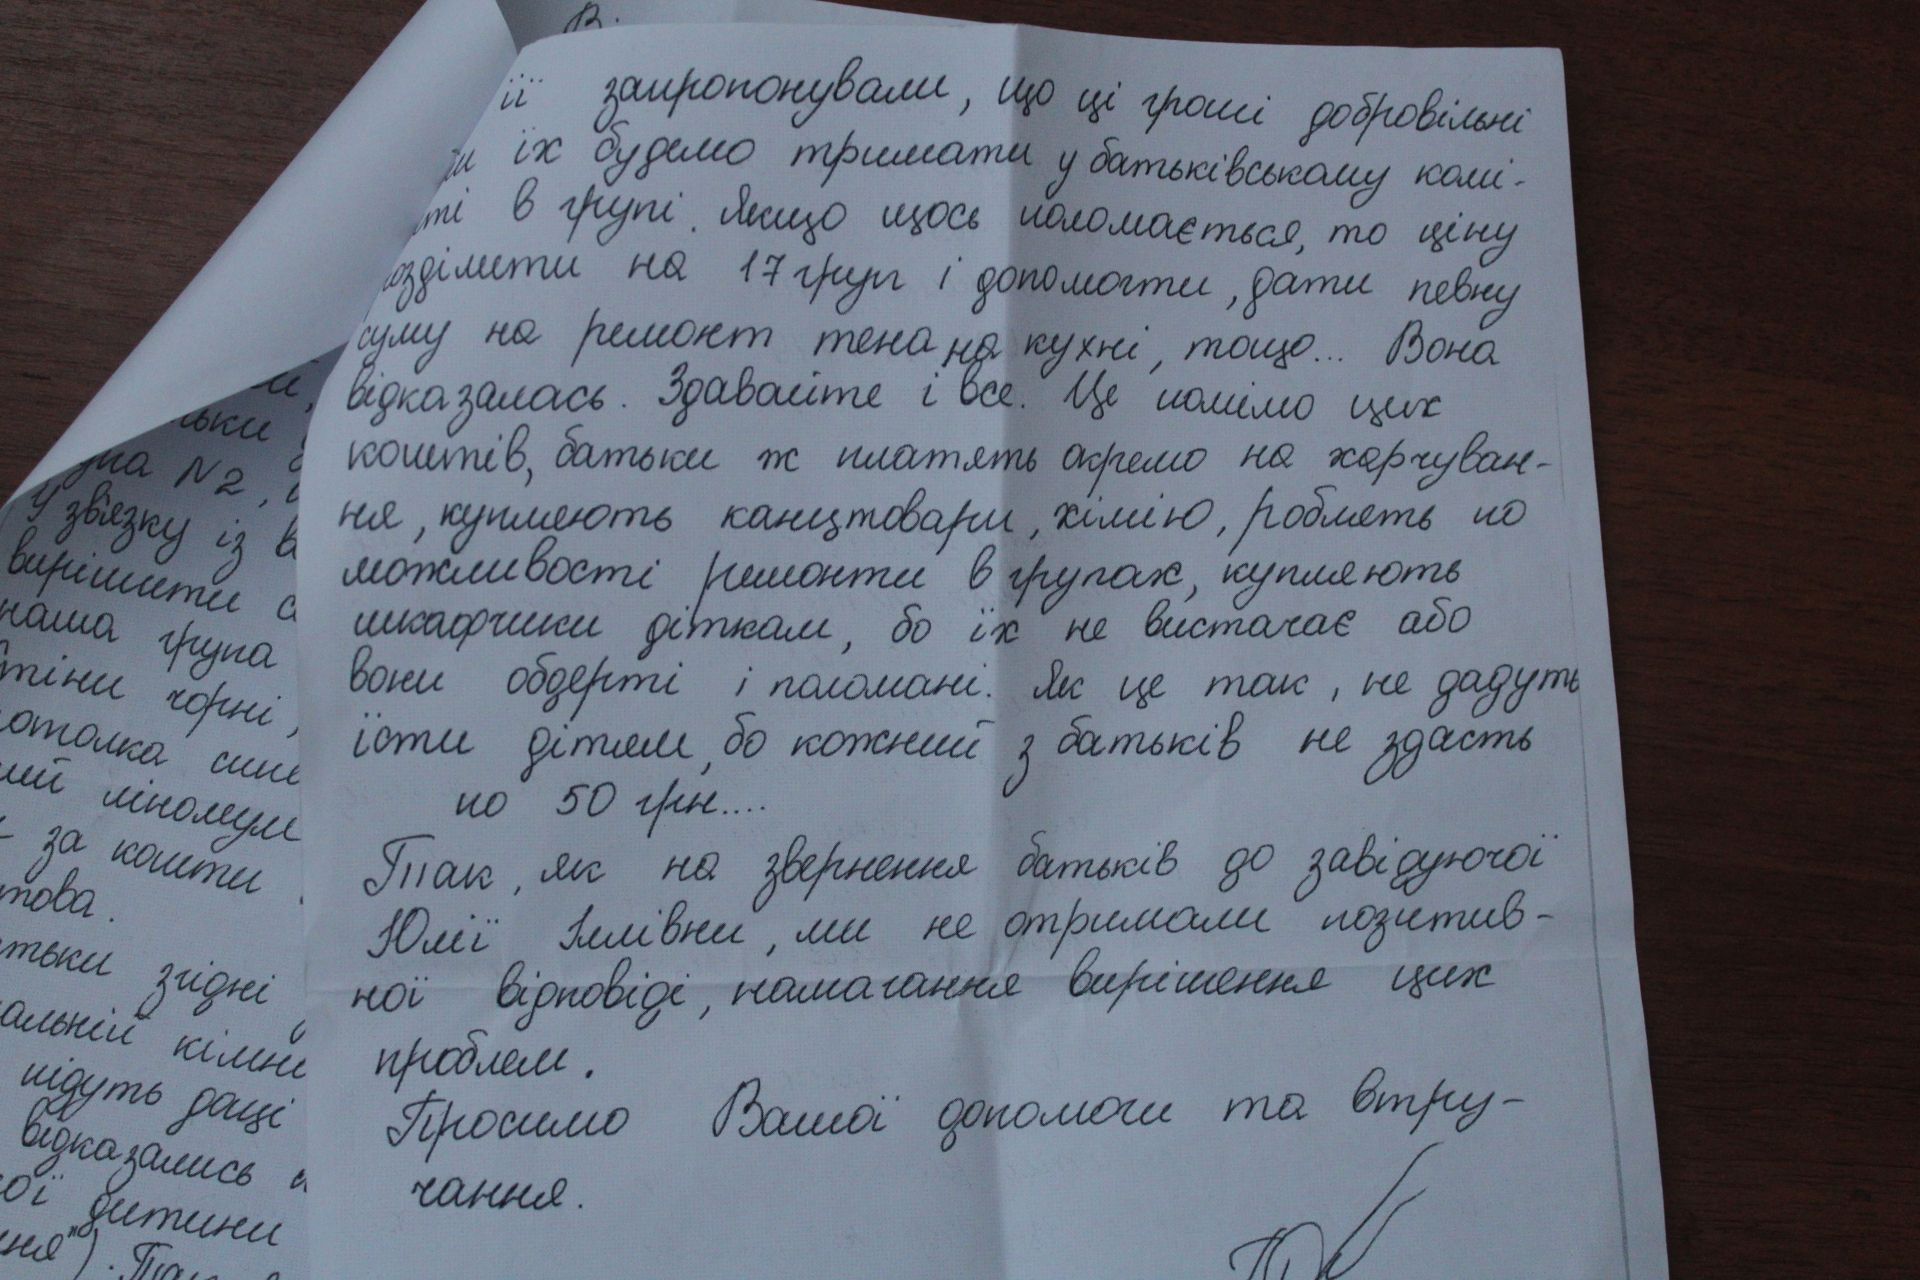 її запропонували, що ці гроші добровільні
їх будемо тримати у батьківському комі-
ті в групі. Якщо щось поломається, то ціну
озділити на 17 груп і допомогти, дати певну
суму на ремонт тена на кухні, тощо... Вона
відказалась. Здавайте і все. Це помімо цих
коштів, батьки ж платять окремо на харчуван-
ня, купляють канцтовари, хімію, роблять по
можливості ремонти в групах, купляють
шкафчики діткам, бо їх не вистачає або
вони обдерті і поломані. Як це так, не дадуть
їсти дітям, бо кожний з батьків не здасть
по 50 грн....
Так, як на звернення батьків до завідуючої
Юлії Іллівни, ми не отримали позитив-
ної відповіді, намагання вирішення цих
проблем.
Просимо Вашої допомоги та втру-
чання.
ьки
па N2,
У зв'язку із в
вирішити с
наша група
тіни чорні,
отолка сип
ий лінолеум
за кошти
това.
тьки згідні
альній кімна
підуть даці
відказались
ої дитини
ня"). Так